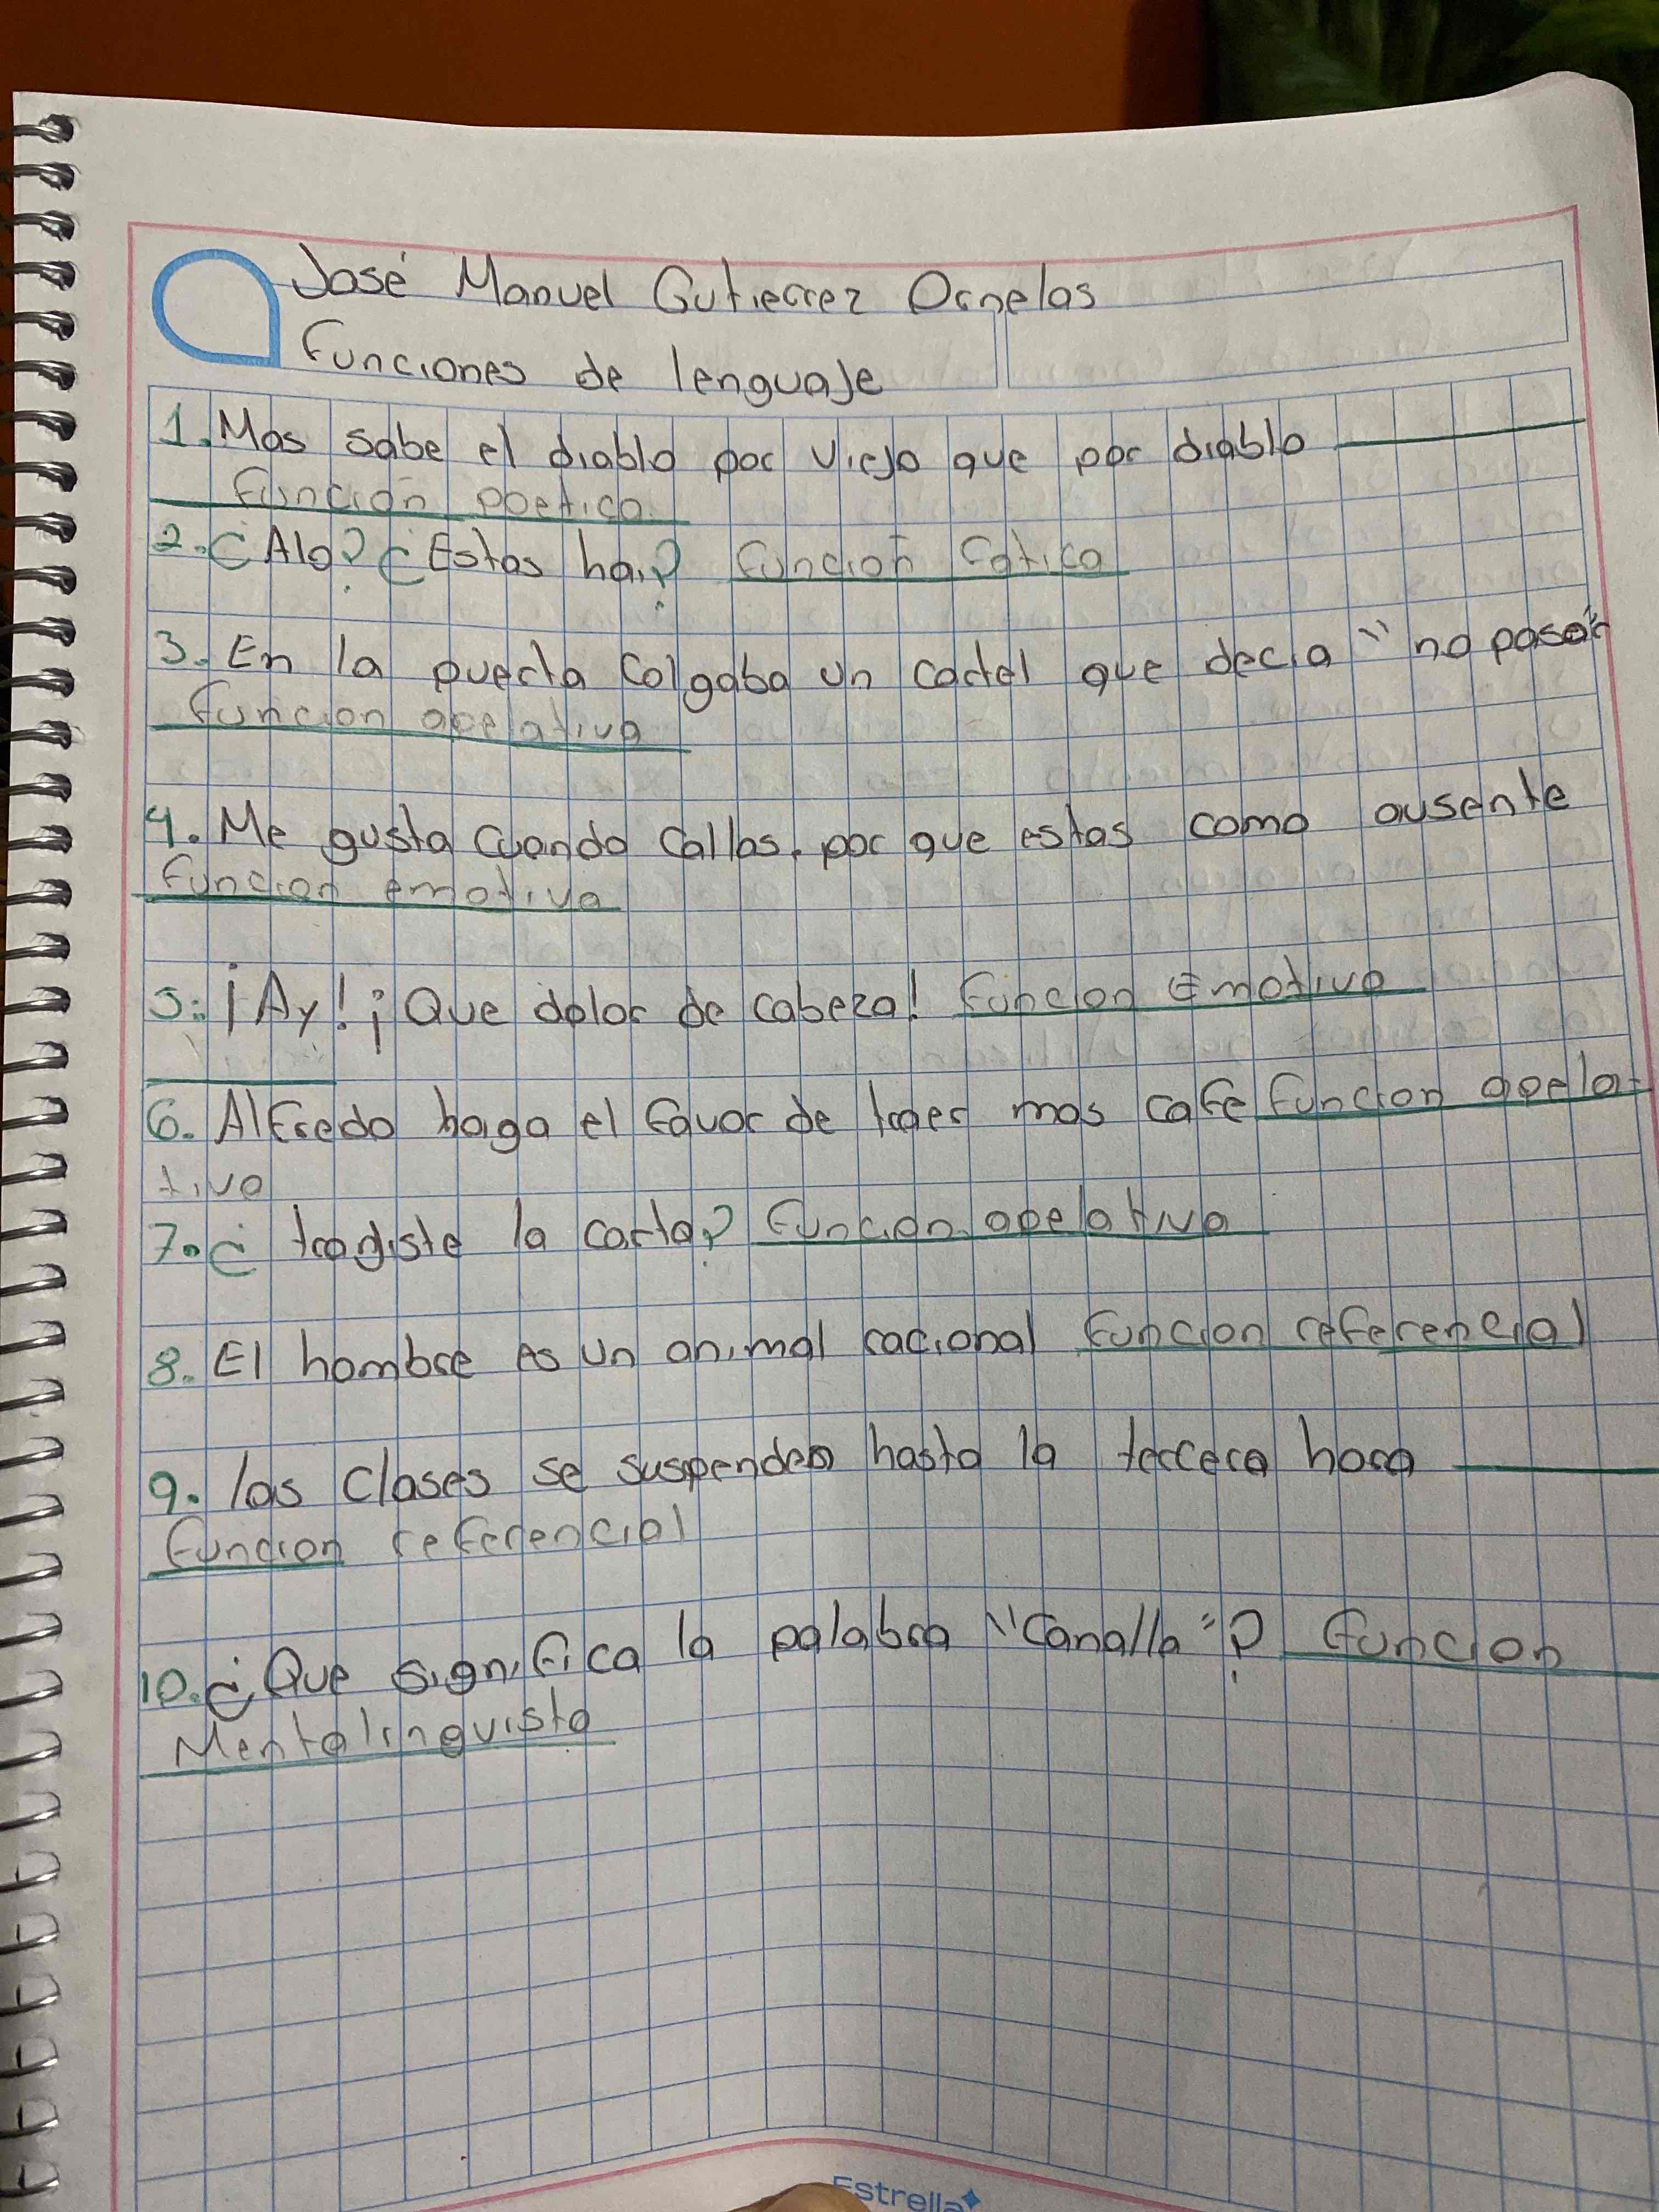 José Manuel Gutierrez Ornelas
Funciones de lenguaje
1. Mas sabe el diablo por viejo que por diablo
función poetica
2. ¿Alo? ¿Estas hai? función fatica
3. En la puerta colgaba un cartel que decia "no pasar"
funcion apelativa
4. Me gusta cuando callas, por que estas como ausente
funcion emotiva
5. ¡Ay! ¡Que dolor de cabeza! funcion Emotiva
6. Alfredo haga el favor de traer mas cafe funcion apela-
tiva
7. ¿ tragiste la carta? funcion apelativa
8. El hombre es un animal racional funcion referencial
9. las clases se suspenden hasta la tercera hora
funcion referencial
10. ¿Que significa la palabra "Canalla"? funcion
Mentalinguista
Estrella